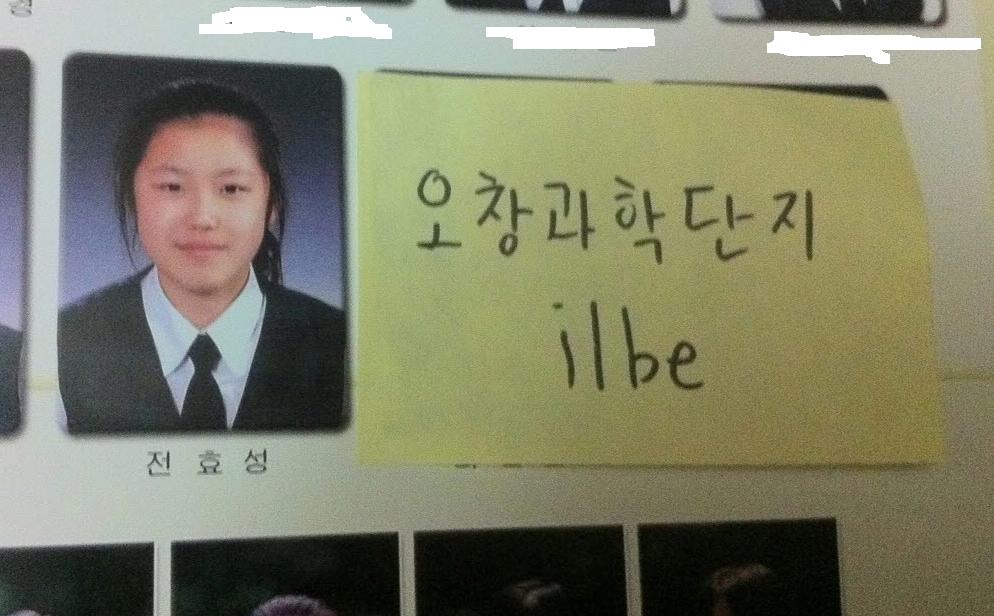 오창과학단지
ilbe
전효성